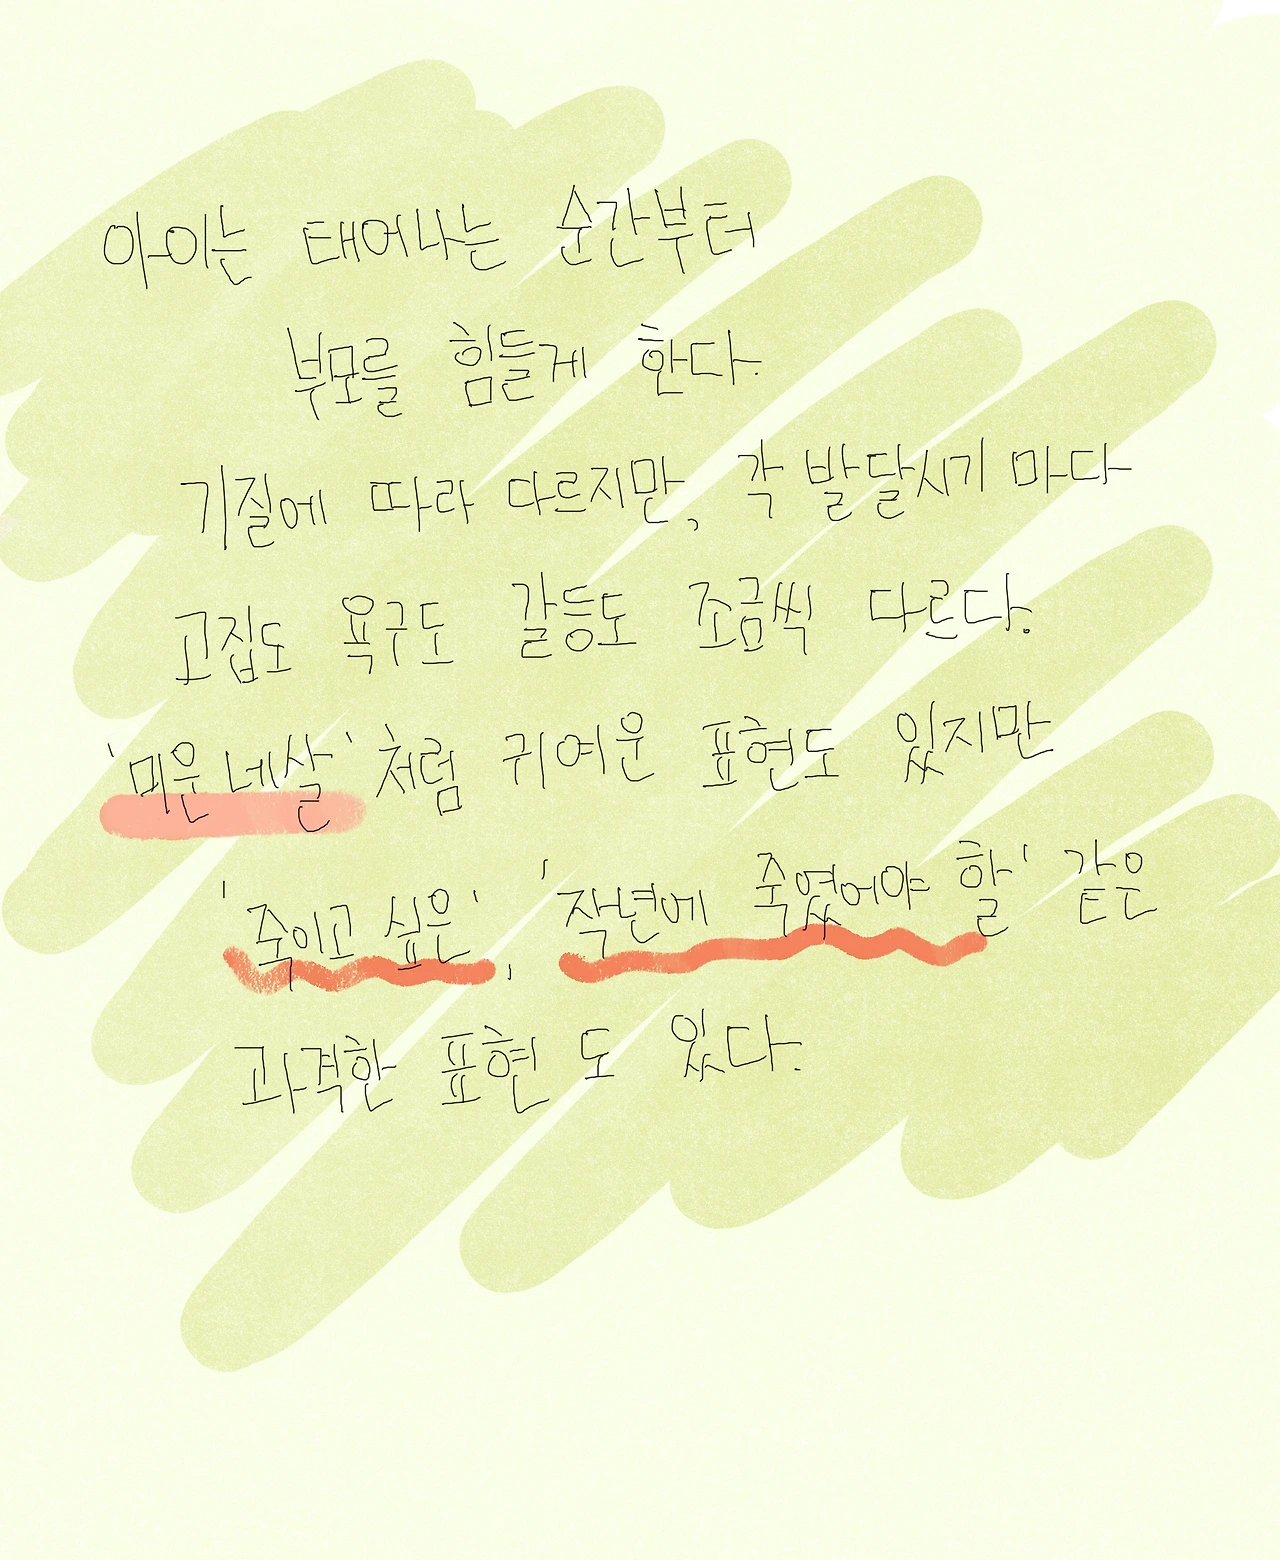 아이는 태어나는 순간부터
부모를 힘들게 한다.
기질에 따라 다르지만, 각 발달시기 마다
고집도 욕구도 갈등도 조금씩 다르다.
'미운 네살'처럼 귀여운 표현도 있지만
'죽이고 싶은', '작년에 죽였어야 할' 같은
과격한 표현 도 있다.